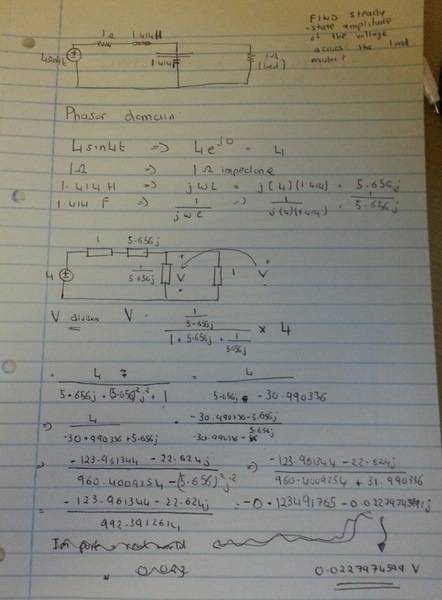 1Ω 1.414H
4sin4t 1.414F 1Ω (load)
FIND steady
-state amplitude
of the voltage
across the load
resistor!
Phasor domain
4sin4t => 4e^j0 = 4
1Ω => 1Ω impedance
1.414H => jωL = j(4)(1.414) = 5.656j
1.414 F => 1/jωC => 1/j(4)(1.414) = 1/5.656j
1 5.656j
4 1/5.656j + V - 1 + V -
V division V = (1/5.656j)/(1 + 5.656j + 1/5.656j) × 4
= 4/(5.656j + (5.656)²j² + 1) = 4/(5.656j - 30.990336)
=> 4/(-30.990336 + 5.656j) × (-30.990336 - 5.656j)/(-30.990336 - 5.656j)
=> (-123.961344 - 22.624j)/(960.4009254 - (5.656)²j²) => (-123.961344 - 22.624j)/(960.4009254 + 31.990336)
= (-123.961344 - 22.624j)/992.3912614 = -0.123491765 - 0.0227974599j
Im part
0.0227974599 V